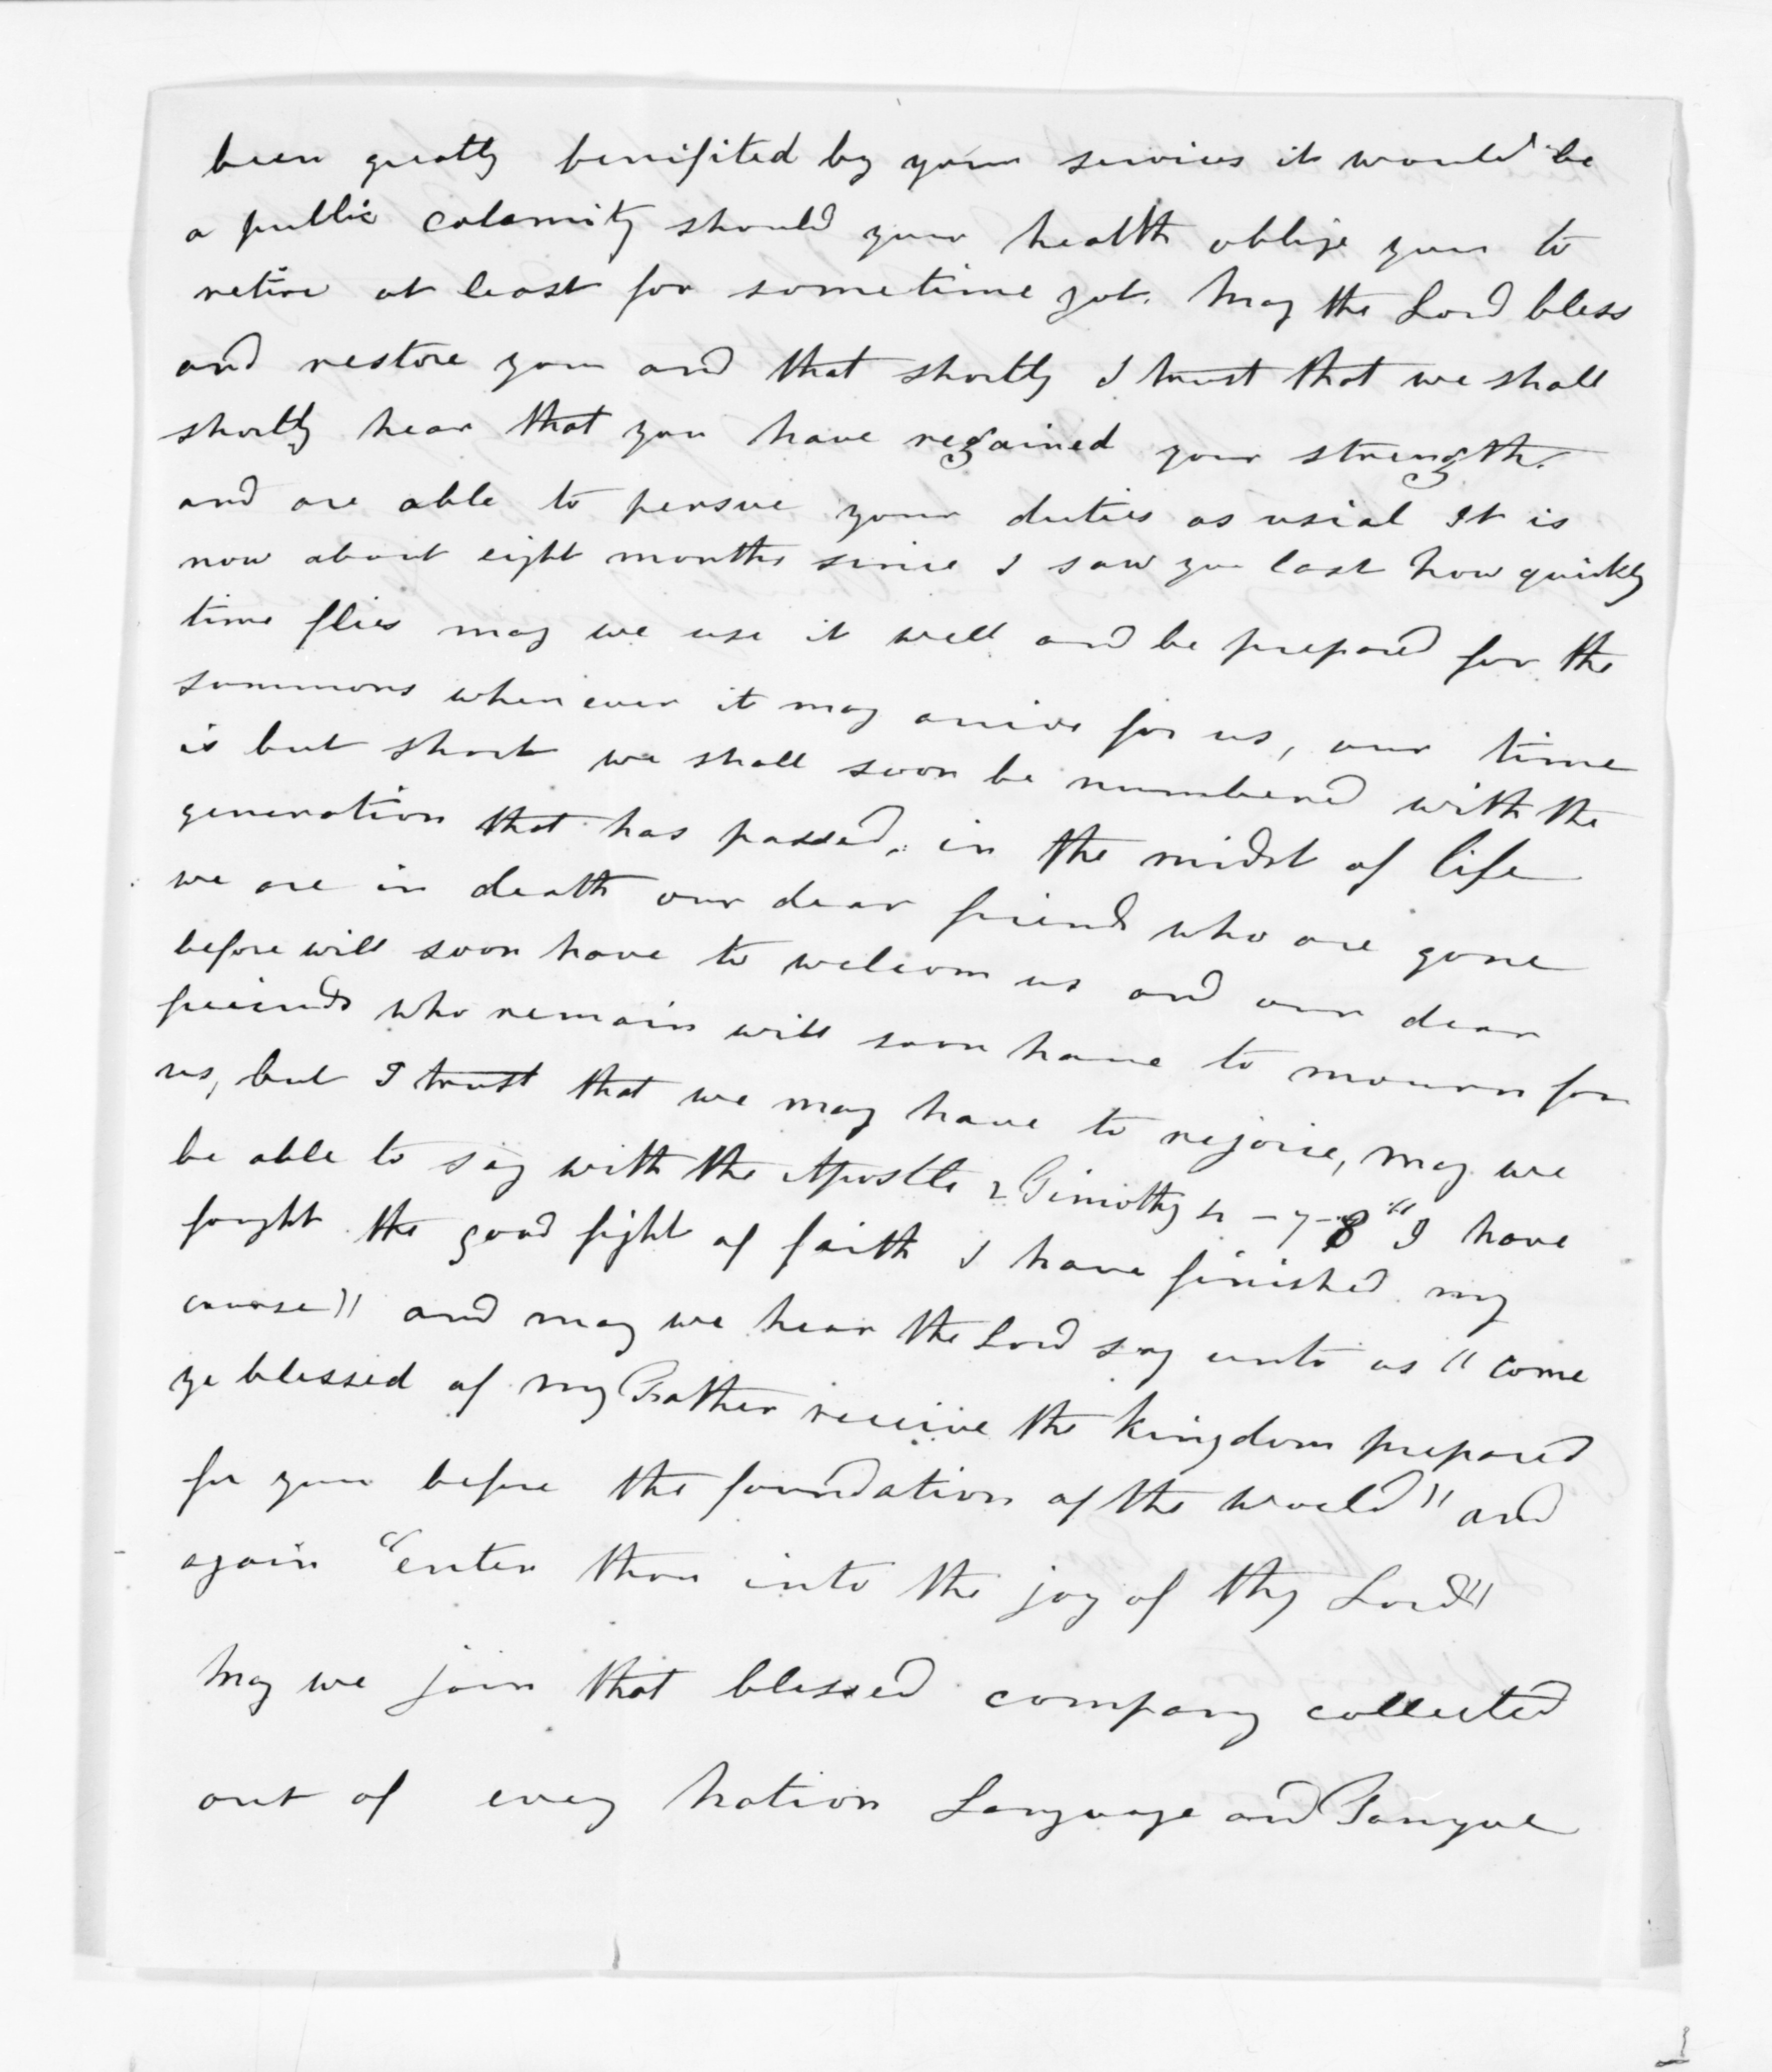 been greatly benifited by your services it would be
a public calamity should your health oblige you to
retire at least for sometime yet. May the Lord bless
and restore you and that shortly I trust that we shall
shortly hear that you have regained your strength.
and are able to persue your duties as usial It is
now about eight months since I saw you last how quickly
time flies may we use it well and be prepared for the
summons when ever it may arrive for us, our time
is but short we shall soon be numbered with the
generation that has passed, in the midst of life
we are in death our dear friends who are gone
before will soon have to welcom us and our dear
freinds who remain will soon have to mourn for
us, but I trust that we may have to rejoice, may we
be able to say with the Apostle 2 Timothy 4 - 7 - 8 "I have
fought the good fight of faith I have finished my
course" and may we hear the Lord say unto us "come
ye blessed of my Father receive the kingdom prepared
for you before the foundation of the world" and
again "enter thou into the joy of thy Lord"
May we join that blessed company collected
out of every Nation Language and Tongue